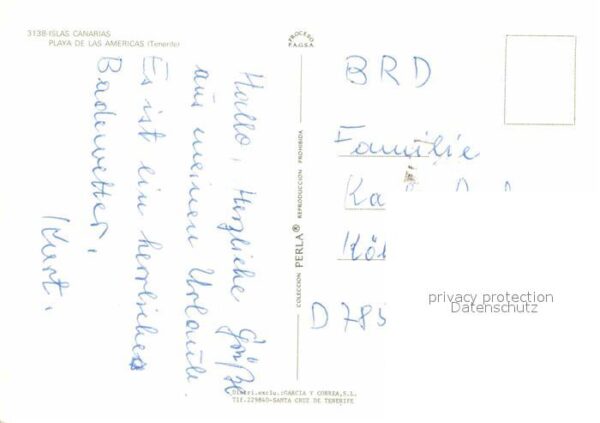 3138-ISLAS CANARIAS
PLAYA DE LAS AMERICAS (Tenerife)
Hallo, Herzliche Grüße
aus meinen Urlaub
Es ist ein herrliches
Badewetter,
Kurt.
PROCERO
F.A.G.S.A.
COLECCION PERLA® REPRODUCCION PROHIBIDA
BRD
Familie
Ka
Köl
D 785
privacy protection
Datenschutz
Distri.exclu.:GARCIA Y CORREA,S.L.
Tlf.229840-SANTA CRUZ DE TENERIFE